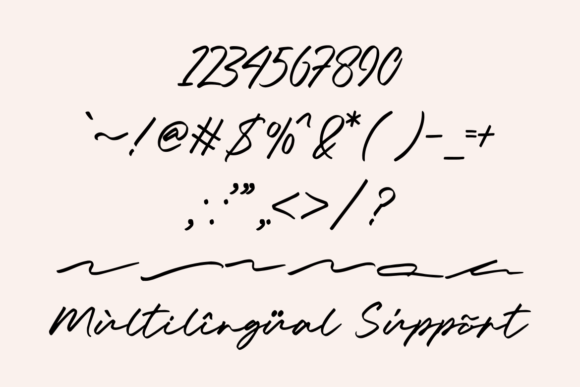 1234567890
`~!@#$%^&*()-_=+
,:;'",.<>/?
Mùltilîngüal Súppõrt